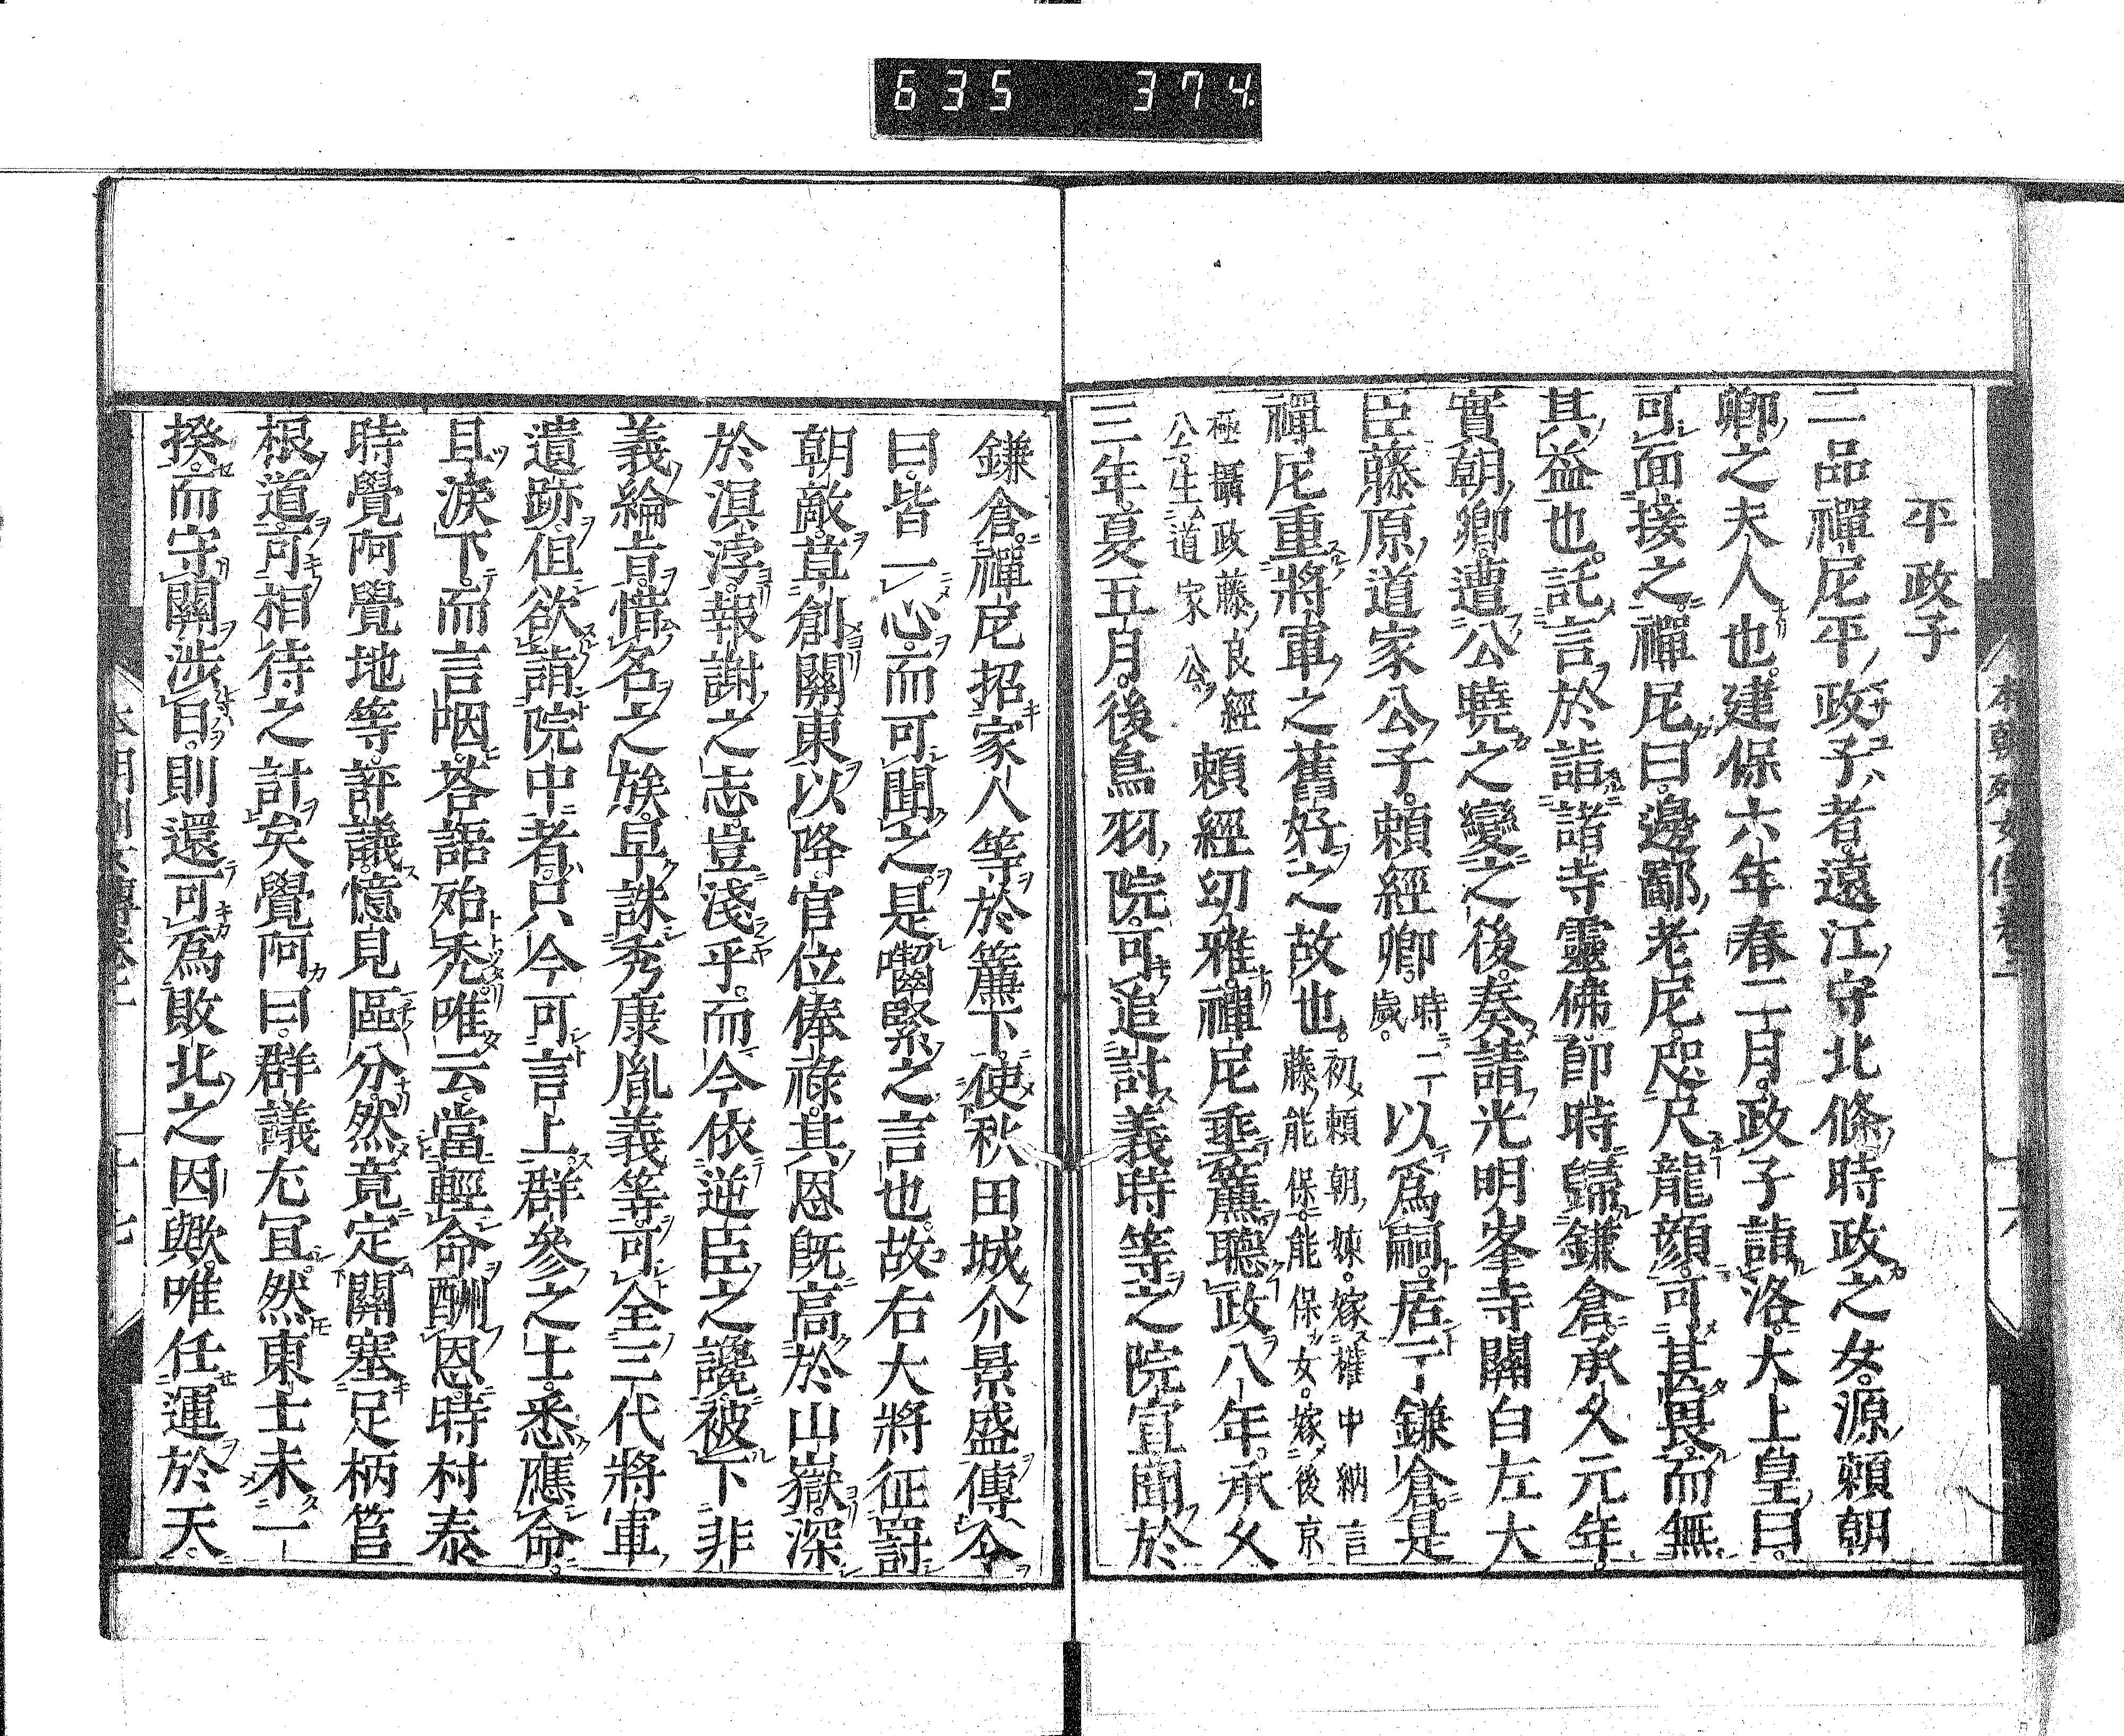 635 374.
本朝列女傳卷二
十六
平政子
二品禪尼平政子者。遠江守北條時政之女。源賴朝
卿之夫人也。建保六年春二月。政子詣洛。大上皇曰。
可面接之。禪尼曰。邊鄙老尼。咫尺龍顏。可甚畏。而無
其益也。託言於詣諸寺靈佛。卽時歸鎌倉。承久元年。
實朝卿。遭公曉之變之後。奏請光明峯寺關白左大
臣藤原道家公子。賴經卿。時二歲。以爲嗣。居于鎌倉。是
禪尼重將軍之舊好之故也。初賴朝妹。嫁權中納言藤能保。能保女。嫁後京
極攝政藤良經公。生道家公。賴經幼雅。禪尼垂簾聽政八年。承久
三年。夏五月。後鳥羽院。可追討義時等之院宣聞於
鎌倉。禪尼招家人等於簾下。使秋田城介景盛傳令
曰。皆一心。而可聞之。是囓緊之言也。故右大將征罸
朝敵。草創關東以降。官位俸祿。其恩既高於山嶽。深
於溟渤。報謝之志。豈淺乎。而今依逆臣之讒。被下非
義綸旨。惜名之族。早誅秀康胤義等。可全三代將軍
遺跡。但欲詣院中者。只今可言上。群參之士。悉應命。
且淚下。而言咽。荅語殆禿。唯云。當輕命酬恩。時村泰
時覺阿覺地等。評議。憶見區分。然竟定關塞足柄筥
根道。可相待之計矣。覺阿曰。群議尤冝。然東士未一
揆。而守關涉日。則還可爲敗北之因歟。唯任運於天。